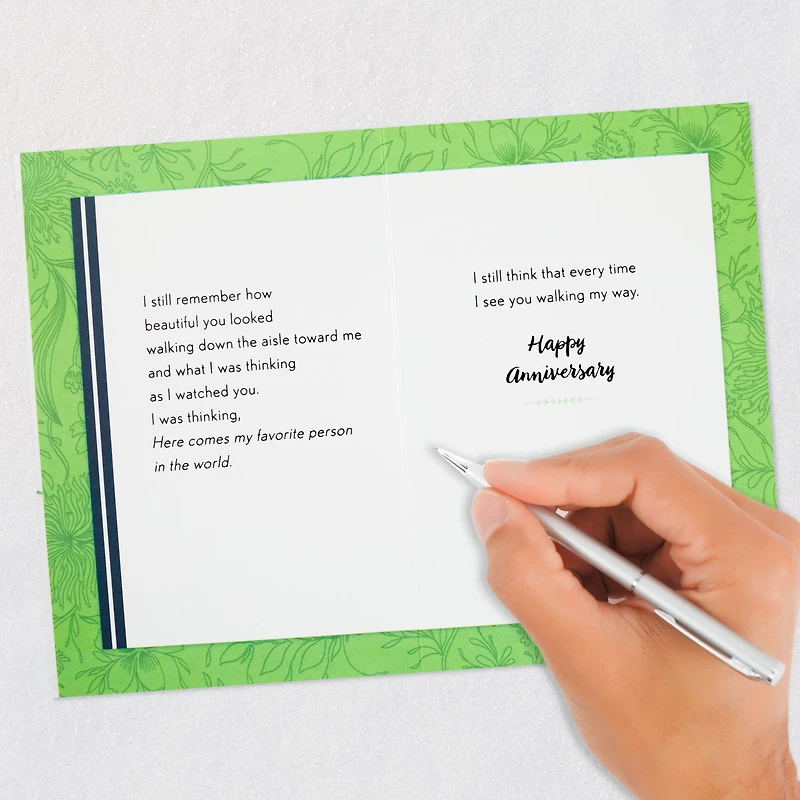 I still remember how
beautiful you looked
walking down the aisle toward me
and what I was thinking
as I watched you.
I was thinking,
Here comes my favorite person
in the world.
I still think that every time
I see you walking my way.
Happy
Anniversary